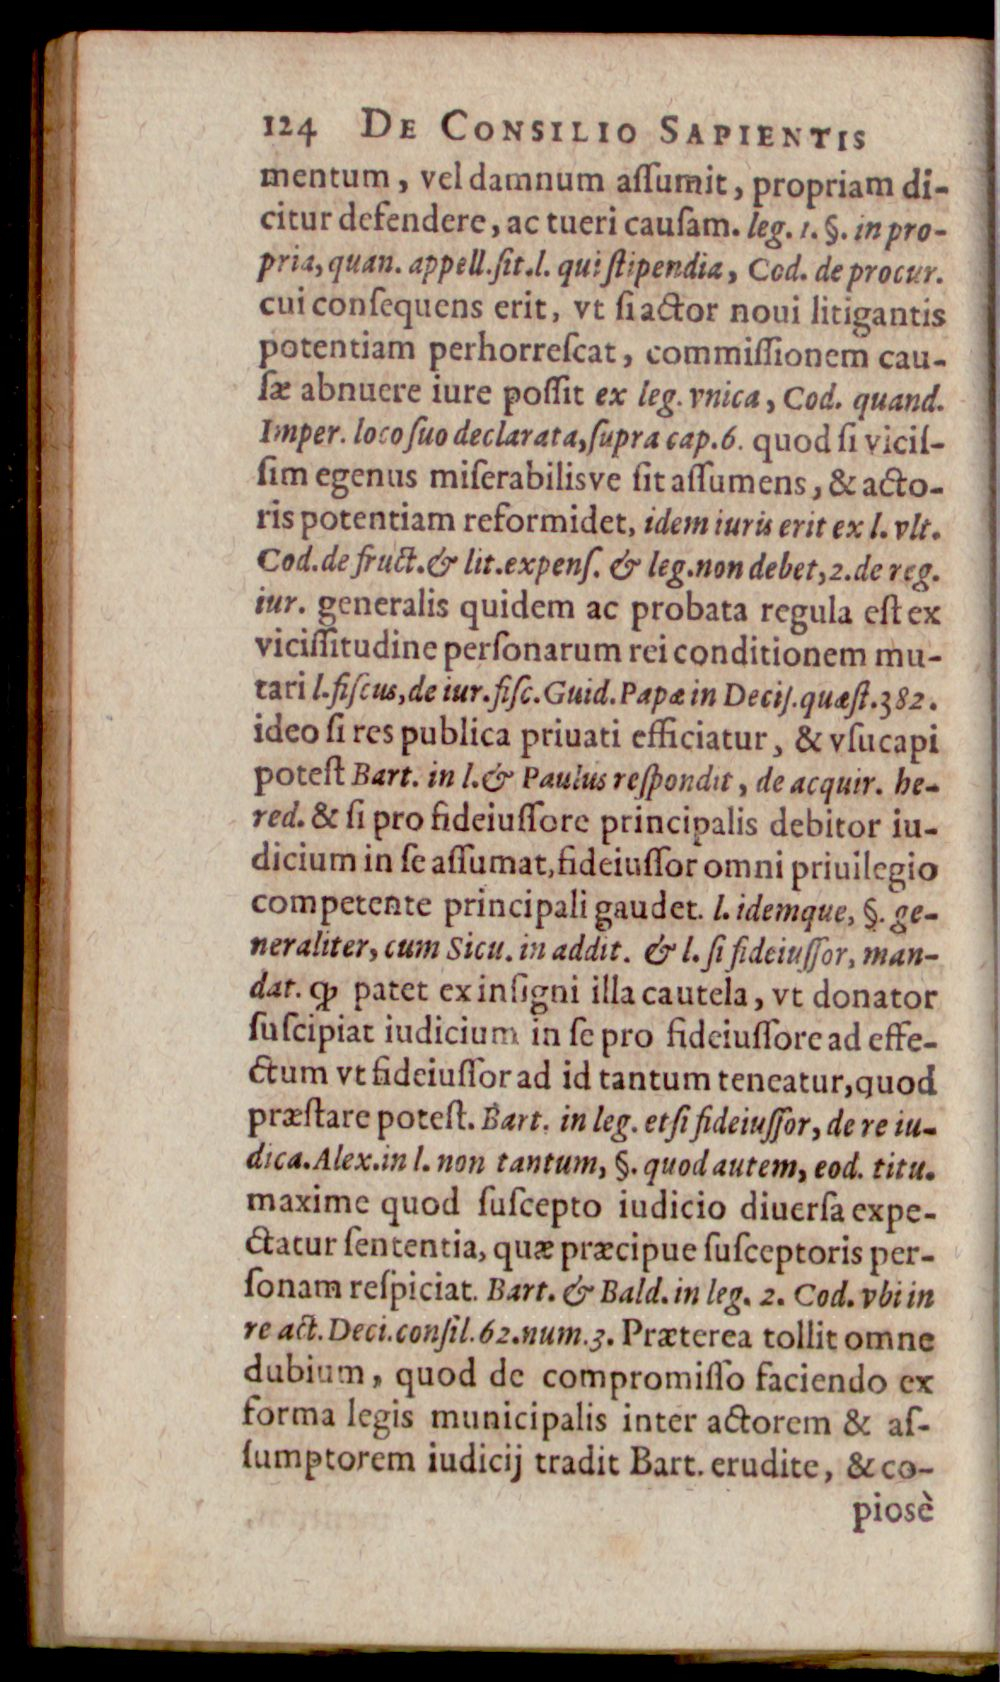 124 DE CONSILIO SAPIENTIS
mentum, vel damnum aſſumit, propriam di-
citur defendere, ac tueri cauſam. leg. 1. §. in pro-
pria, quan. appell. ſit. l. qui ſtipendia, Cod. de procur.
cui conſequens erit, vt ſi actor noui litigantis
potentiam perhorreſcat, commiſſionem cau-
ſæ abnuere iure poſſit ex leg. vnica, Cod. quand.
Imper. loco ſuo declarata, ſupra cap. 6. quod ſi viciſ-
ſim egenus miſerabilisve ſit aſſumens, & acto-
ris potentiam reformidet, idem iuris erit ex l. vlt.
Cod. de fruct. & lit. expenſ. & leg. non debet, 2. de reg.
iur. generalis quidem ac probata regula eſt ex
viciſſitudine perſonarum rei conditionem mu-
tari l. fiſcus, de iur. fiſc. Guid. Papæ in Deciſ. quæſt. 382.
ideo ſi res publica priuati efficiatur, & vſucapi
poteſt Bart. in l. & Paulus reſpondit, de acquir. he-
red. & ſi pro fideiuſſore principalis debitor iu-
dicium in ſe aſſumat, fideiuſſor omni priuilegio
competente principali gaudet. l. idemque, §. ge-
neraliter, cum Sicu. in addit. & l. ſi fideiuſſor, man-
dat. ꝙ patet ex inſigni illa cautela, vt donator
ſuſcipiat iudicium in ſe pro fideiuſſore ad effe-
ctum vt fideiuſſor ad id tantum teneatur, quod
præſtare poteſt. Bart. in leg. etſi fideiuſſor, de re iu-
dica. Alex. in l. non tantum, §. quod autem, eod. titu.
maxime quod ſuſcepto iudicio diuerſa expe-
ctatur ſententia, quæ præcipue ſuſceptoris per-
ſonam reſpiciat. Bart. & Bald. in leg. 2. Cod. vbi in
re act. Deci. conſil. 62. num. 3. Præterea tollit omne
dubium, quod de compromiſſo faciendo ex
forma legis municipalis inter actorem & aſ-
ſumptorem iudicij tradit Bart. erudite, & co-
piosè